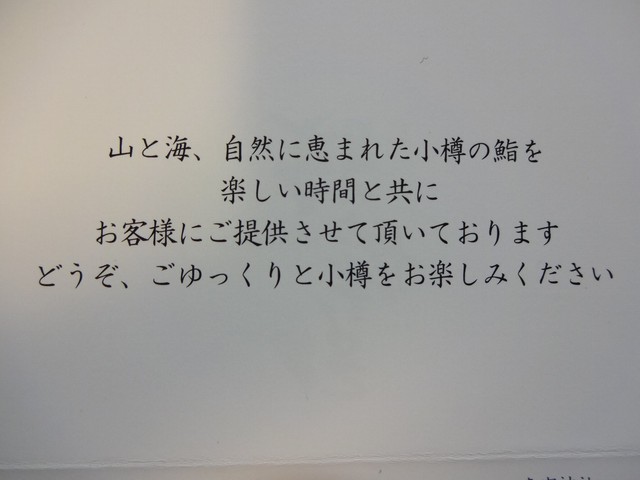 山と海、自然に恵まれた小樽の鮨を
楽しい時間と共に
お客様にご提供させて頂いております
どうぞ、ごゆっくりと小樽をお楽しみください